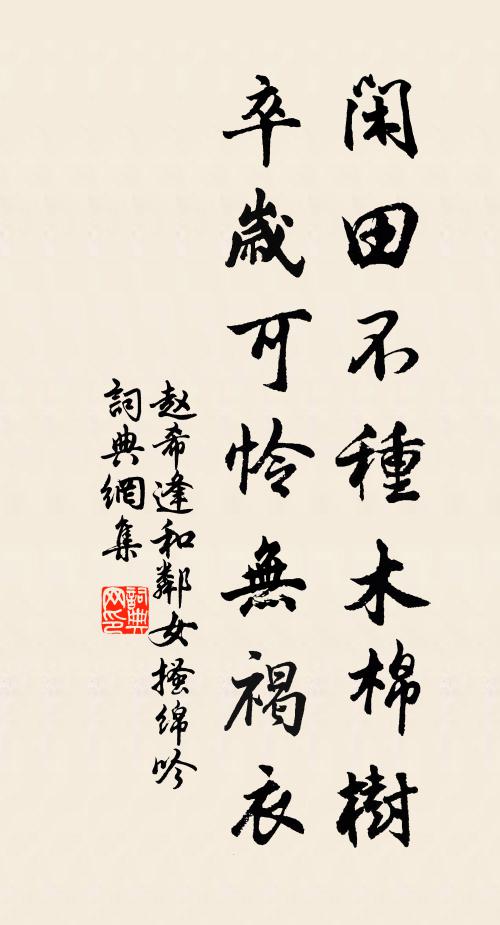 閑田不種木棉樹
卒歲可憐無褐衣
赵希逢和鄰女搔綿吟
詞典網集
詞典网印